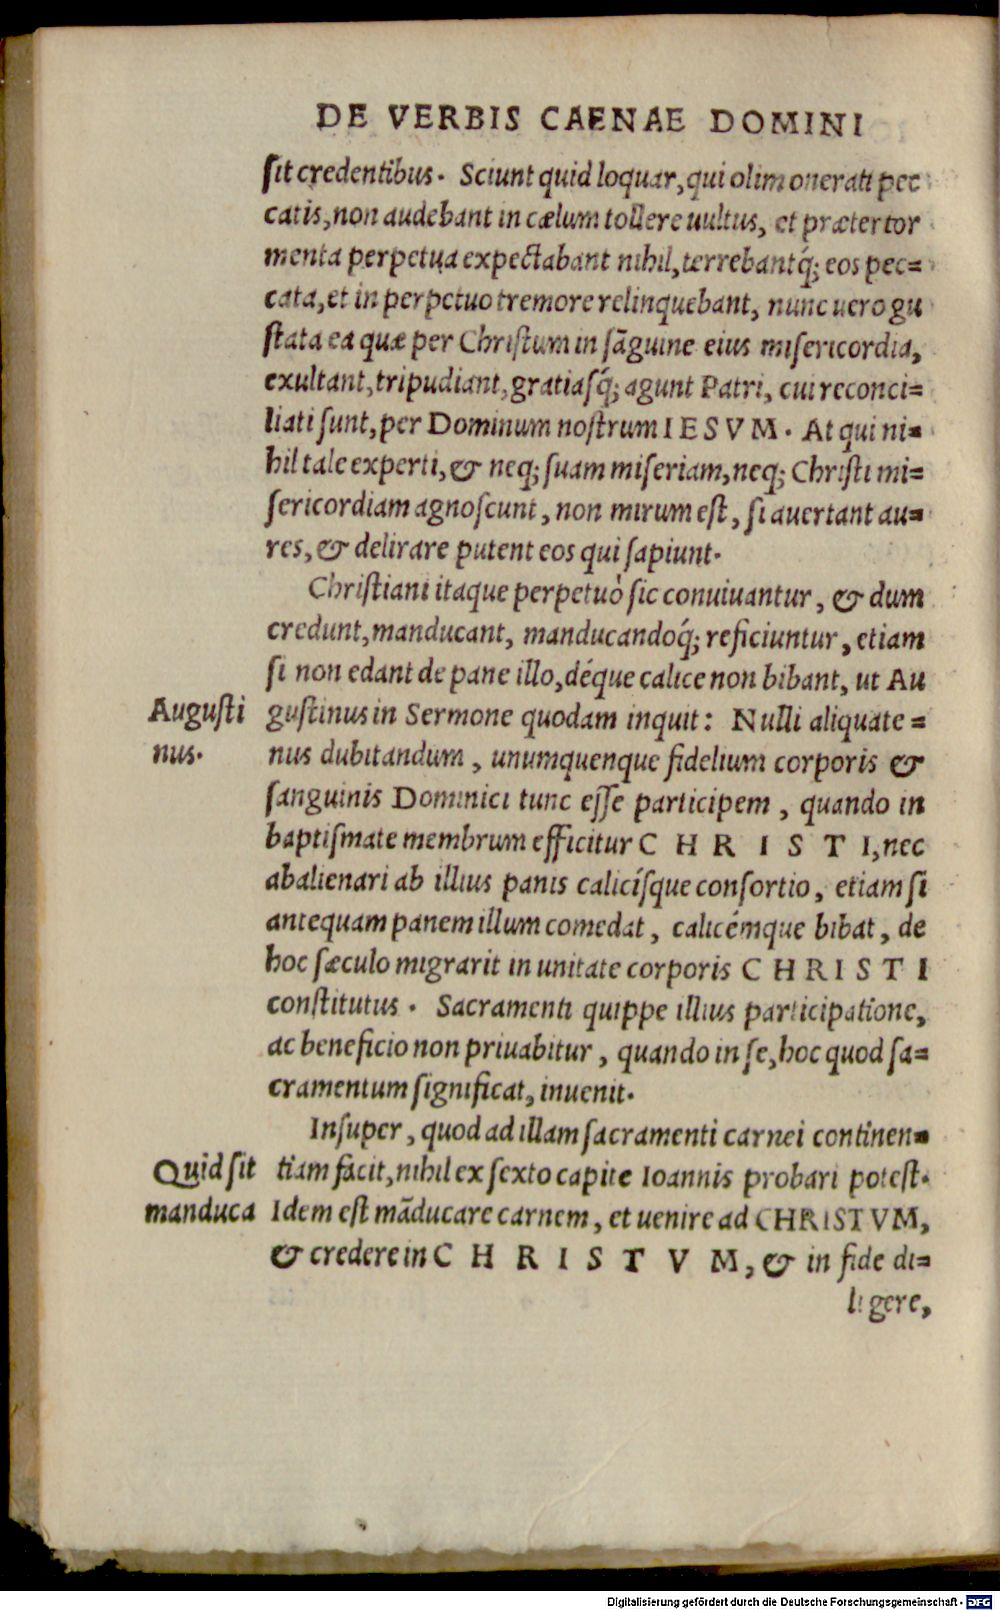 DE VERBIS CAENAE DOMINI
sit credentibus. Sciunt quid loquar, qui olim onerati pec
catis, non audebant in cælum tollere uultus, et præter tor
menta perpetua expectabant nihil, terrebantq́; eos pec=
cata, et in perpetuo tremore relinquebant, nunc uero gu
stata ea quæ per Christum in sāguine eius misericordia,
exultant, tripudiant, gratiasq́; agunt Patri, cui reconci=
liati sunt, per Dominum nostrum IESVM. At qui ni=
hil tale experti, & neq; suam miseriam, neq; Christi mi=
sericordiam agnoscunt, non mirum est, si auertant au=
res, & delirare putent eos qui sapiunt.
Christiani itaque perpetuò sic conuiuantur, & dum
credunt, manducant, manducandoq́; reficiuntur, etiam
si non edant de pane illo, déque calice non bibant, ut Au
Augusti gustinus in Sermone quodam inquit: Nulli aliquate=
nus. nus dubitandum, unumquenque fidelium corporis &
sanguinis Dominici tunc esse participem, quando in
baptismate membrum efficitur CHRISTI, nec
abalienari ab illius panis calicísque consortio, etiam si
antequam panem illum comedat, calicémque bibat, de
hoc sæculo migrarit in unitate corporis CHRISTI
constitutus. Sacramenti quippe illius participatione,
ac beneficio non priuabitur, quando in se, hoc quod sa=
cramentum significat, inuenit.
Insuper, quod ad illam sacramenti carnei continen=
Quid sit tiam facit, nihil ex sexto capite Ioannis probari potest.
manduca Idem est māducare carnem, et uenire ad CHRISTVM,
& credere in CHRISTVM, & in fide di=
ligere,
Digitalisierung gefördert durch die Deutsche Forschungsgemeinschaft - DFG